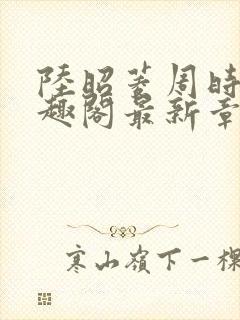 陸昭菱周時
趣閣最新章
寒山嶺下一棵